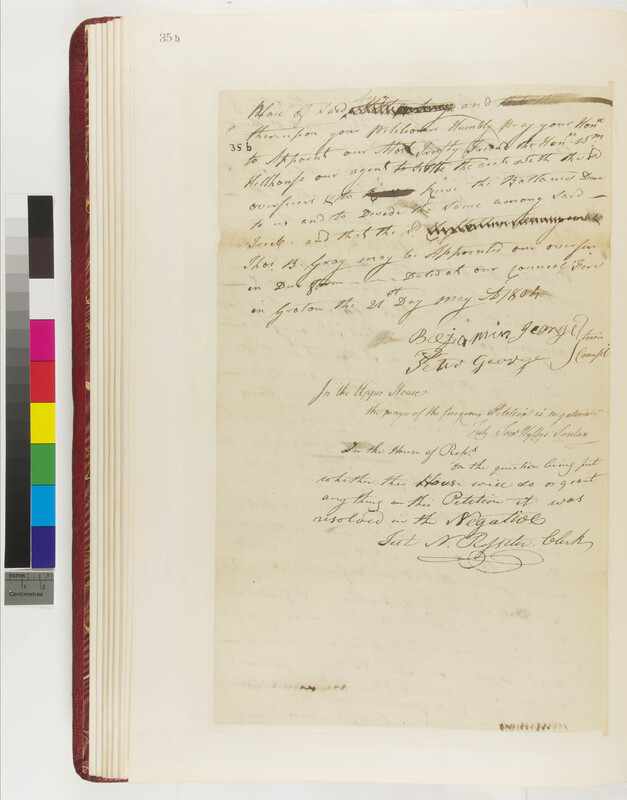 35b
Place of Said and
thereupon your Petitioners Humbly Pray your Honrs
35b
to Appoint our Most Trusty Friend the Honrl
Hillhouse our agent to Settle the with the sd
overseers & to the Ballance Due
to us and to Devide the Same among Said
Tribe and that the sd
Thos B. Gray may be Appointed our overseer
in Due form Dated at our Council Fire
in Groton the 21st Day may AD 1804
Benjamin George
Peter George
In the Upper House
the prayer of the foregoing Petition is negatived
Test Saml Wyllys Secretary
In the House of Reps
On the question being put
whether this House will do or grant
any thing on this Petition it was
resolved in the Negative
Test N. Rossiter Clerk
Inches 1 2
Centimetres